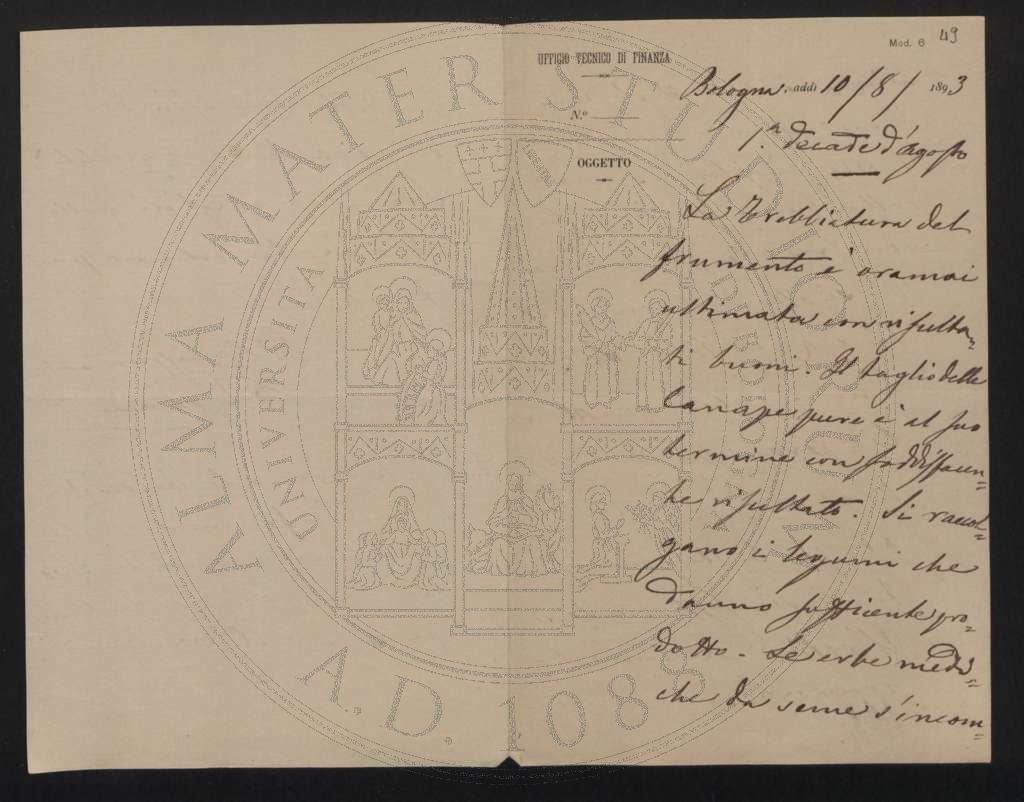 Mod. 6
49
UFFICIO TECNICO DI FINANZA
N.º
OGGETTO
Bologna, addì 10/8/ 1893
1.ª decade d'Agosto
La Trebbiatura del
frumento è oramai
ultimata con risulta=
ti buoni. Il taglio delle
Canape pure è al suo
termine con soddisfacen=
te risultato. Si raccol=
gano i legumi che
danno sufficiente pro=
dotto. Le erbe medi=
che da seme s'incom=
ALMA MATER STUDIORUM
UNIVERSITÀ DI BOLOGNA
A.D. 1088